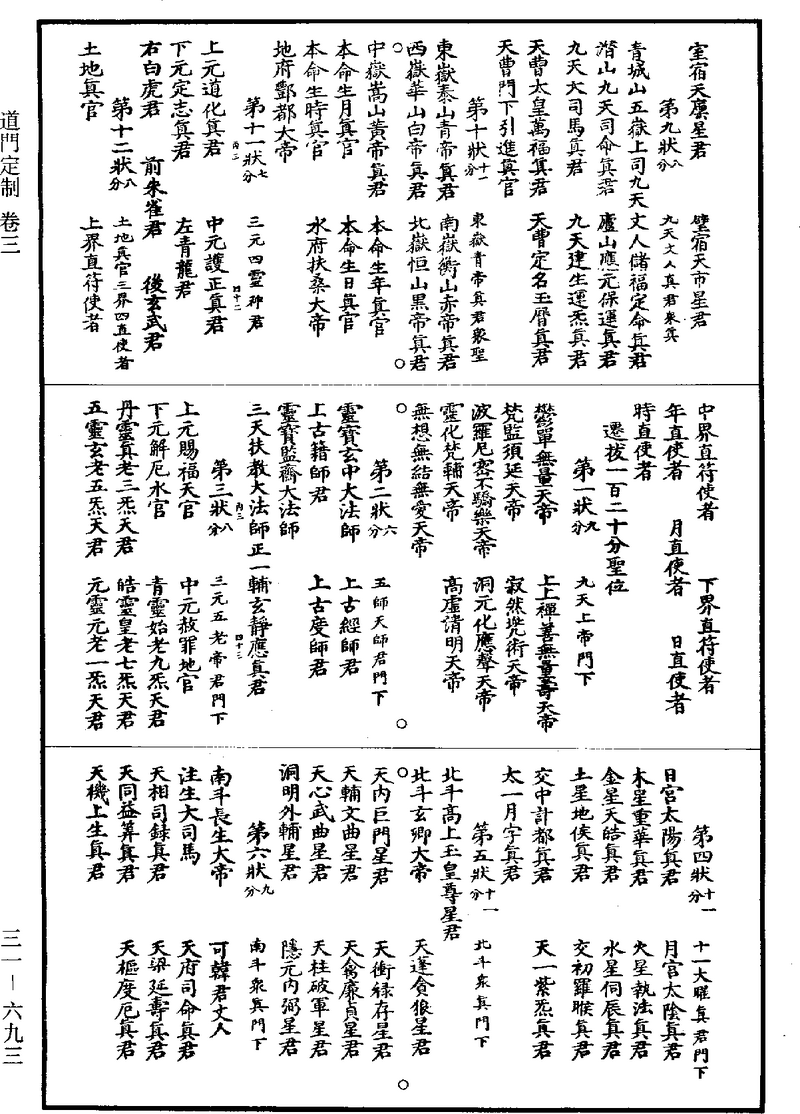 道門定制 卷三
三一—六九三
室宿天廩星君 壁宿天市星君
第九狀八分 九天文人真君衆真
青城山五嶽上司九天丈人儲福定命真君
潛山九天司命真君 廬山應元保運真君
九天大司馬真君 九天建生運炁真君
天曹太皇萬福真君 天曹定名玉曆真君
天曹門下引進真官
第十狀十一分 東嶽青帝真君衆聖
東嶽泰山青帝真君 南嶽衡山赤帝真君
西嶽華山白帝真君 北嶽恒山黑帝真君
中嶽嵩山黃帝真君 本命生年真官
本命生月真官 本命生日真官
本命生時真官 水府扶桑大帝
地府酆都大帝
第十一狀七分 三元四靈神君
丙二 四十二
上元道化真君 中元護正真君
下元定志真君 左青龍君
右白虎君 前朱雀君 後玄武君
第十二狀八分 土地真官三界四直使者
土地真官 上界直符使者
中界直符使者 下界直符使者
年直使者 月直使者 日直使者
時直使者
遷拔一百二十分聖位
第一狀九分 九天上帝門下
鬱單無量天帝 上上禪善無量壽天帝
梵監須延天帝 寂然兜術天帝
波羅尼蜜不驕樂天帝 洞元化應聲天帝
靈化梵輔天帝 高虛清明天帝
無想無結無愛天帝
第二狀六分 五師天師君門下
靈寶玄中大法師 上古經師君
上古籍師君 上古度師君
靈寶監齋大法師
三天扶教大法師正一輔玄靜應真君
丙三 四十三
第三狀八分 三元五老帝君門下
上元賜福天官 中元赦罪地官
下元解厄水官 青靈始老九炁天君
丹靈真老三炁天君 皓靈皇老七炁天君
五靈玄老五炁天君 元靈元老一炁天君
第四狀十一分 十一大曜真君門下
日宮太陽真君 月宮太陰真君
木星重華真君 火星執法真君
金星天皓真君 水星伺辰真君
土星地侯真君 交初羅睺真君
交中計都真君 天一紫炁真君
太一月孛真君
第五狀十一分 北斗衆真門下
北斗高上玉皇尊星君
北斗玄卿大帝 天蓬貪狼星君
天內巨門星君 天衝祿存星君
天輔文曲星君 天禽廉貞星君
天心武曲星君 天柱破軍星君
洞明外輔星君 隱元內弼星君
第六狀九分 南斗衆真門下
南斗長生大帝 可韓君丈人
注生大司馬 天府司命真君
天相司錄真君 天梁延壽真君
天同益算真君 天樞度厄真君
天機上生真君